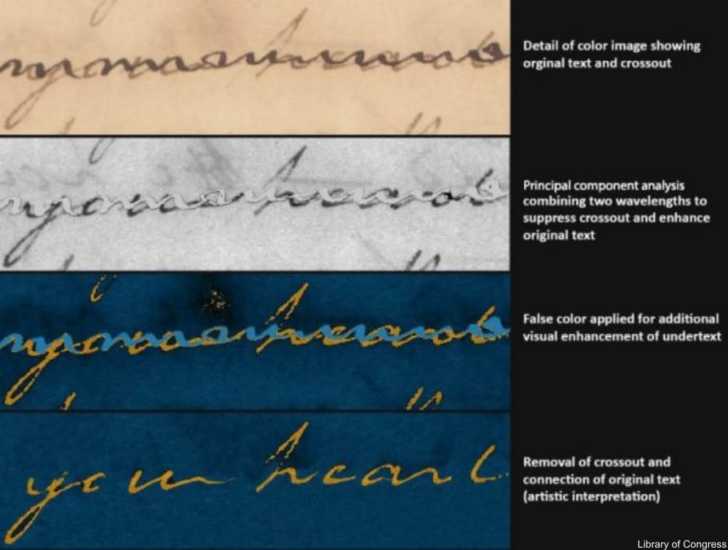 Detail of color image showing
orginal text and crossout
Principal component analysis
combining two wavelengths to
suppress crossout and enhance
original text
False color applied for additional
visual enhancement of undertext
your heart
Removal of crossout and
connection of original text
(artistic interpretation)
Library of Congress